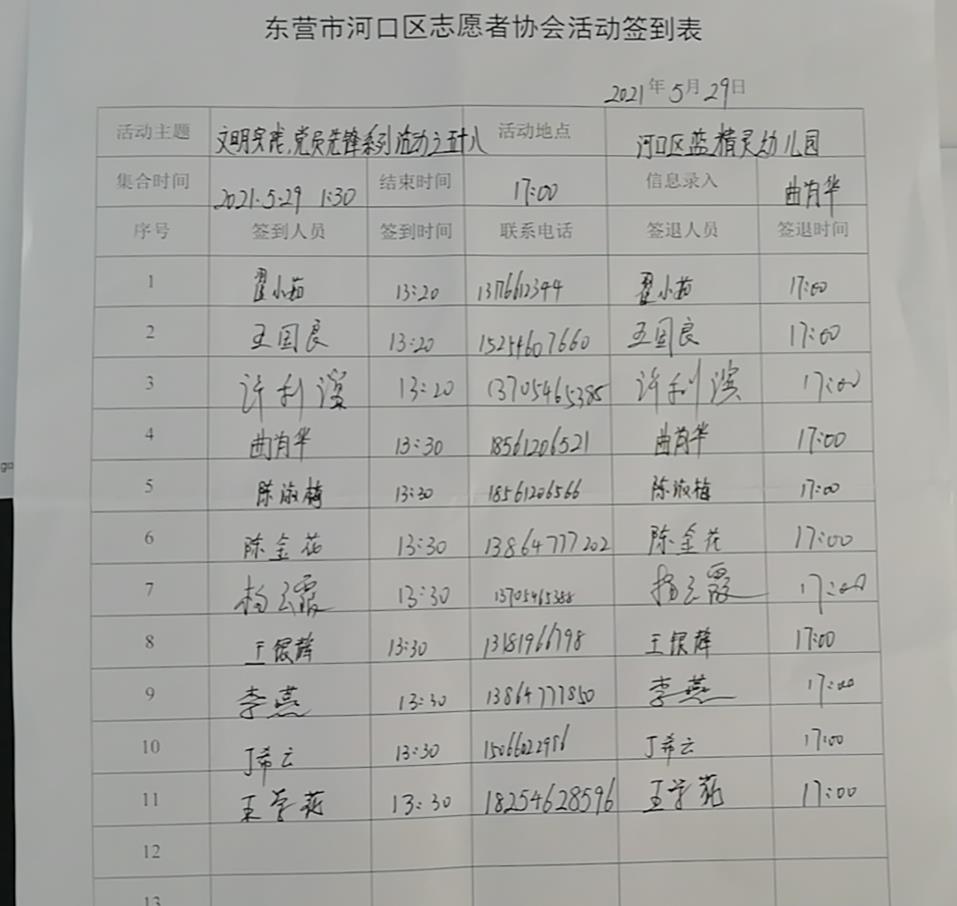 东营市河口区志愿者协会活动签到表
2021年5月29日
活动主题 文明实践,党员先锋系列活动之五十八 活动地点 河口区蓝精灵幼儿园
集合时间 2021.5.29 1:30 结束时间 17:00 信息录入 曲肖华
序号 签到人员 签到时间 联系电话 签退人员 签退时间
1 翟小茹 13:20 翟小茹 17:00
2 王国良 13:20 15254607660 王国良 17:00
3 许利滨 13:20 13705465385 许利滨 17:00
4 曲肖华 13:30 18561206521 曲肖华 17:00
5 陈淑梅 13:30 18561206566 陈淑梅 17:00
6 陈金花 13:30 13864777202 陈金花 17:00
7 杨云霞 13:30 13705465388 杨云霞 17:00
8 王银辉 13:30 13181966798 王银辉 17:00
9 李燕 13:30 13864777850 李燕 17:00
10 丁希云 13:30 丁希云 17:00
11 王学苑 13:30 18254628596 王学苑 17:00
12
13